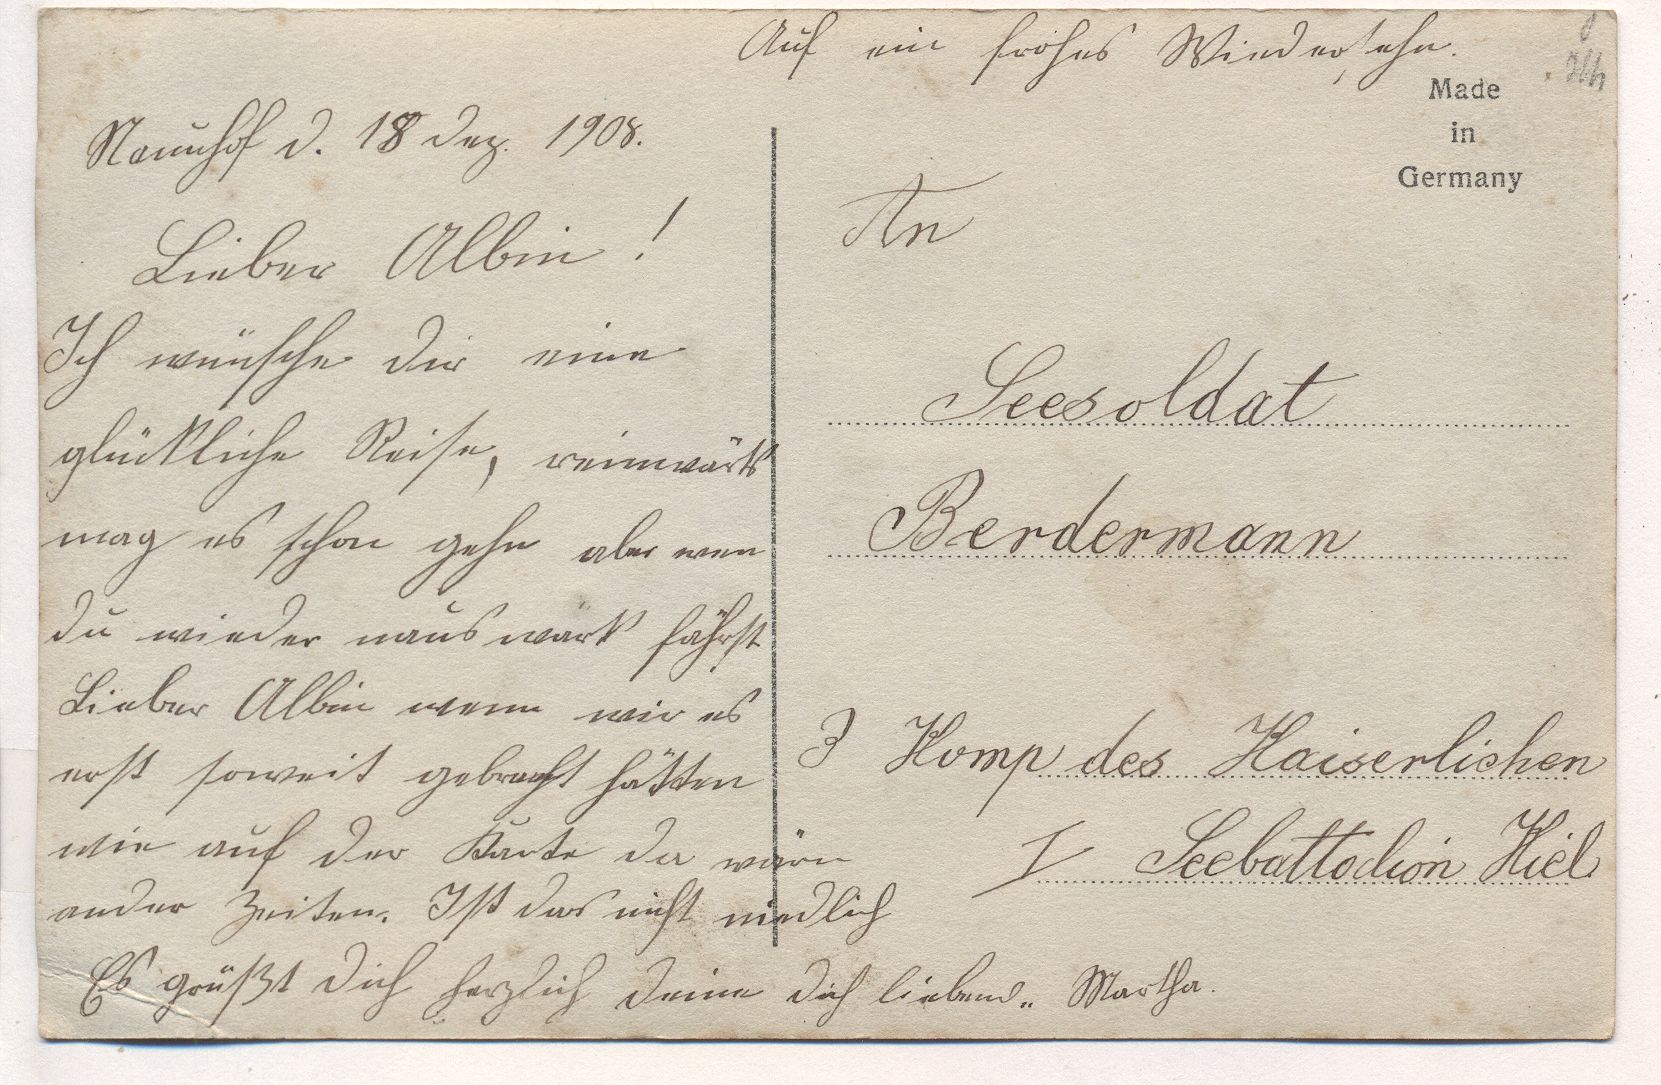 Auf ein frohes Wiedersehn.
Made
in
Germany
Naunhof d. 18 Dez. 1908.
Lieber Albin!
Ich wünsche dir eine
glückliche Reise, reinwärts
mag es schon gehn aber wen
du wieder nauswärts fährst
Lieber Albin wenn wir es
erst soweit gebracht hätten
wie auf der Karte da wärn
ander Zeiten. Ist das nicht niedlich
Es grüßt dich herzlich deine dich liebend.. Martha.
An
Seesoldat
Berdermann
3 Komp des Kaiserlichen
I Seebattadion Kiel